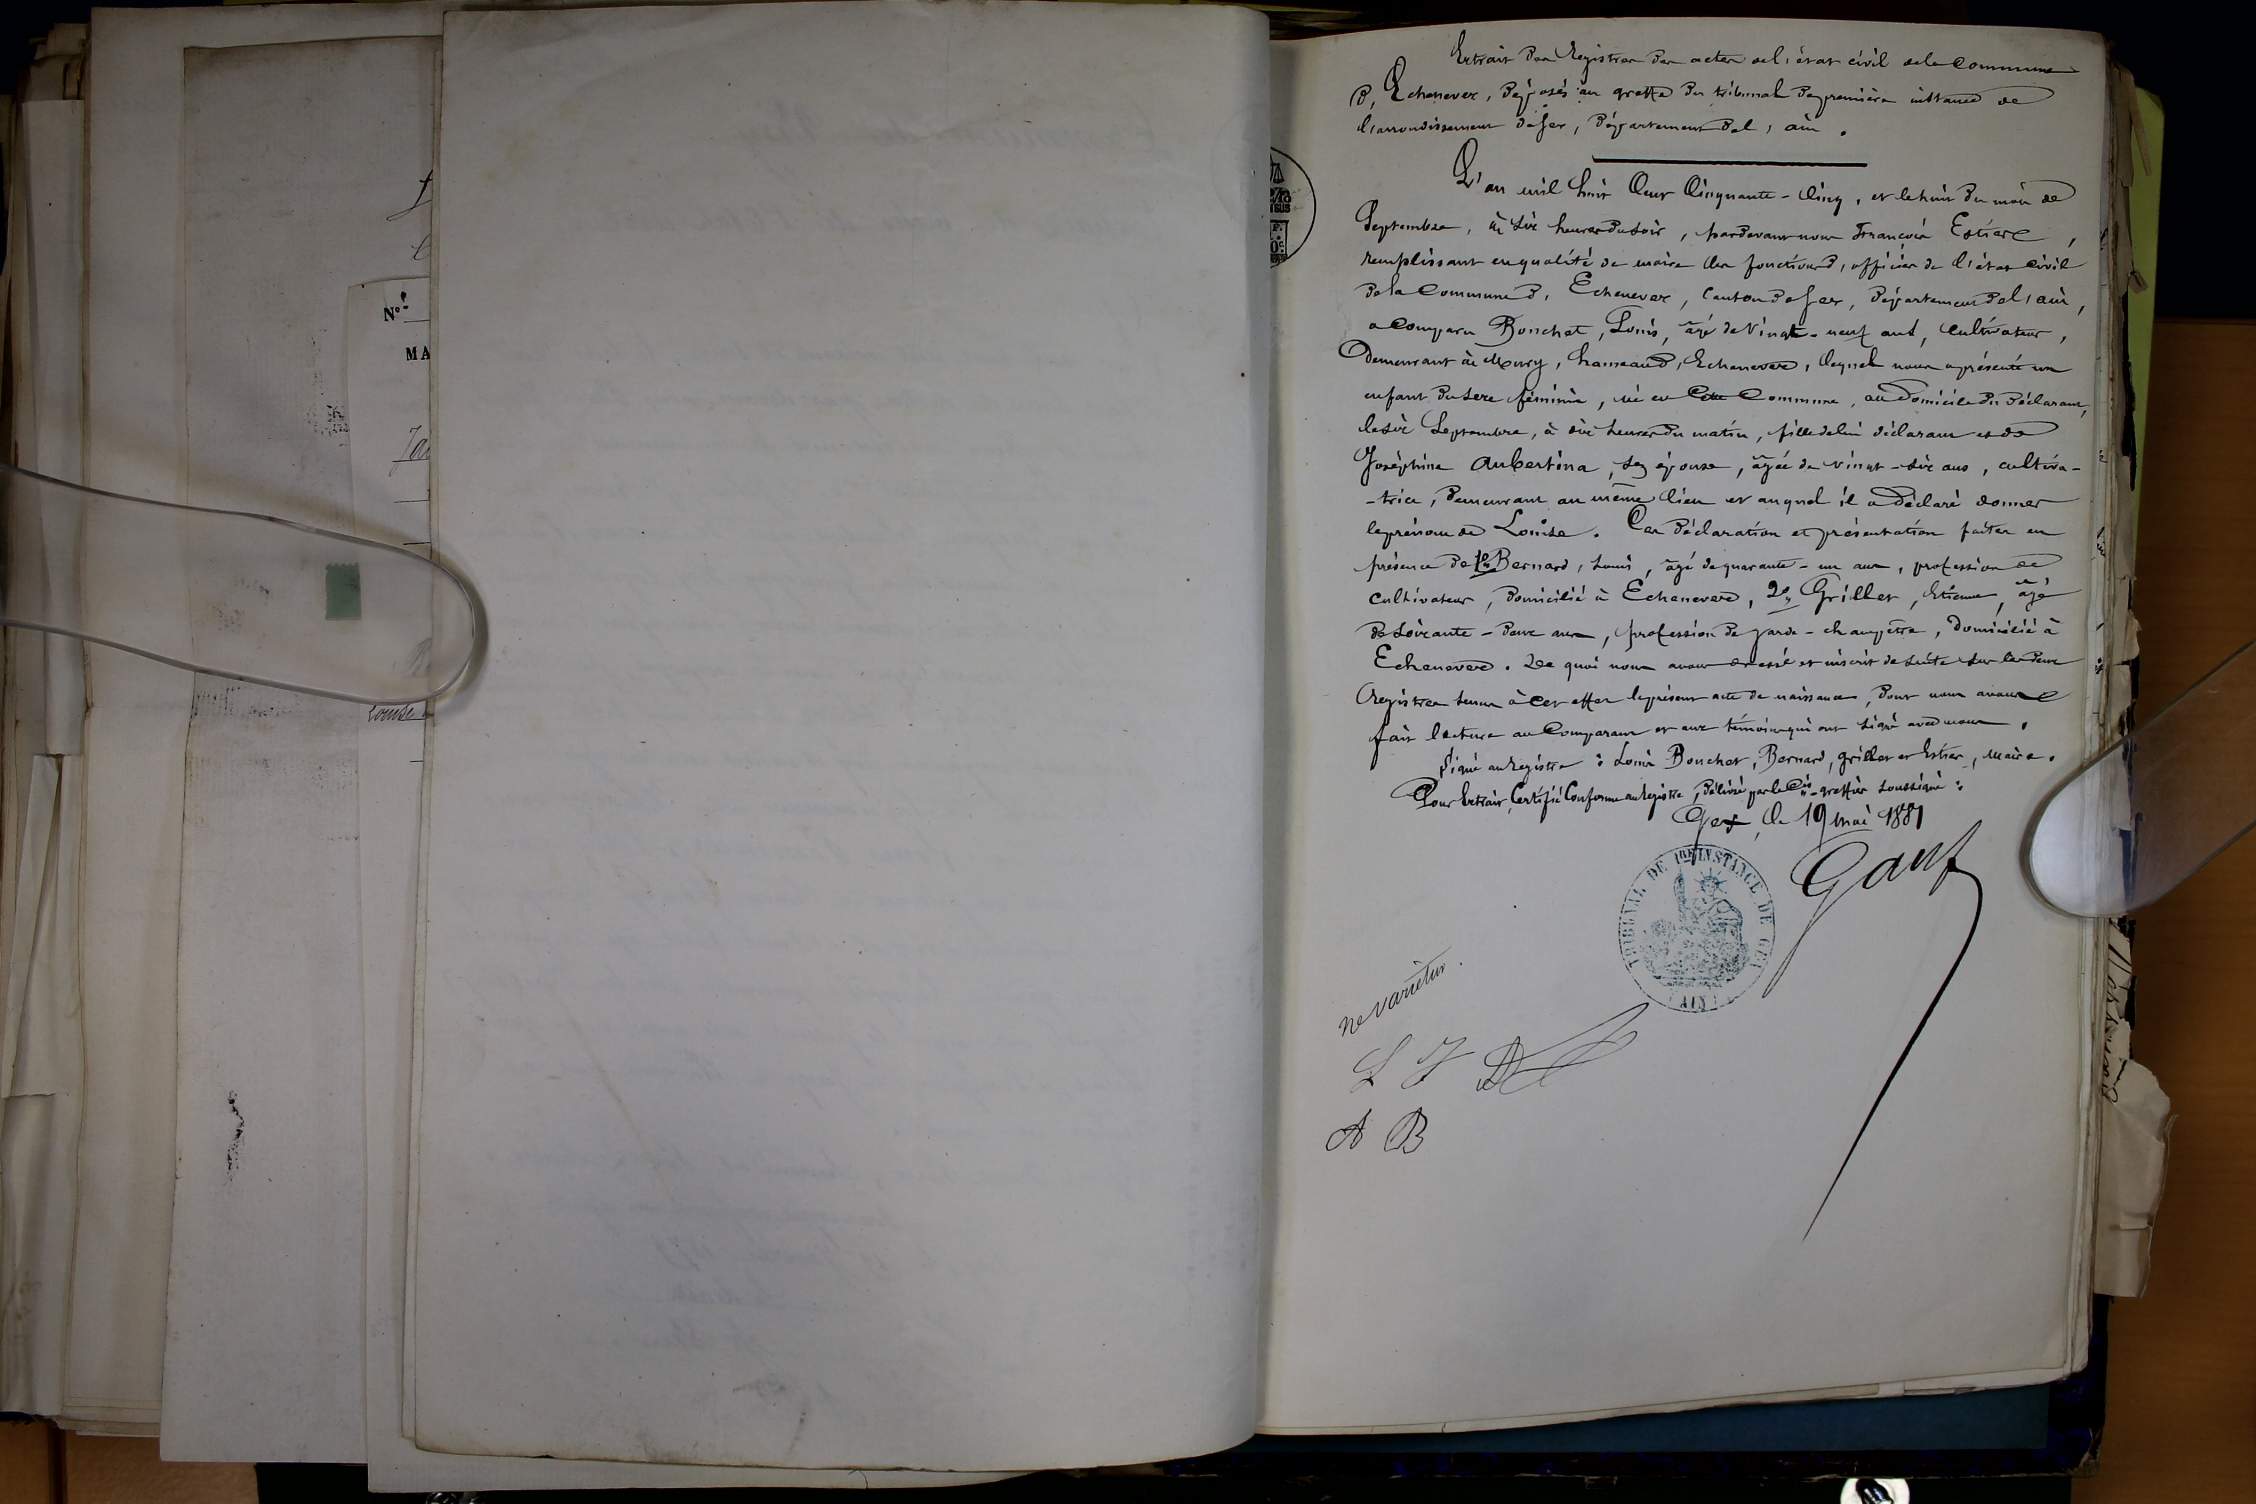 Extrait des Registres des actes de l'état civil de la Commune
d'Echenevex, déposés au greffe du tribunal de première instance de
l'arrondissement de Gex, Département de l'ain.
L'an mil huit Cent Cinquante-Cinq, et le huit du mois de
Septembre, à six heures du soir, pardevant nous François Estier,
remplissant en qualité de maire les fonctions d'officier de l'état civil
de la Commune d'Echenevex, Canton de Gex, Département de l'ain,
a Comparu Bonchet, Louis, âgé de Vingt-neuf ans, Cultivateur,
Demeurant à Mury, hameau d'Echenevex, lequel nous a présenté un
enfant du sexe féminin, né en Cette Commune, au Domicile du Déclarant,
le six Septembre, à dix heures du matin, fille de lui déclarant et de
Joséphine Aubertina, son épouse, âgée de vingt-six ans, cultiva-
-trice, Demeurant au même lieu et auquel il a Déclaré donner
le prénom de Louise. Ces Déclaration et présentation faites en
présence de 1º Bernard, Louis, âgé de quarante-un ans, profession de
Cultivateur, Domicilié à Echenevex, 2º Grillet, Etienne, âgé
de soixante-deux ans, profession de garde-champêtre, Domicilié à
Echenevex. De quoi nous avons dressé et inscrit de suite sur les deux
Registres tenus à Cet effet le présent acte de naissance, Dont nous avons
fait lecture au Comparant et aux témoins qui ont signé avec nous.
Signé au Registre : Louis Bonchet, Bernard, Grillet et Estier, Maire.
Pour Extrait Certifié Conforme au Registre, Délivré par le Cis-greffier soussigné :
Gex, le 19 mai 1881
Gauf
TRIBUNAL DE 1RE INSTANCE DE GEX
AIN
ne varietur.
L J D
A B
Nº
MA
Louise